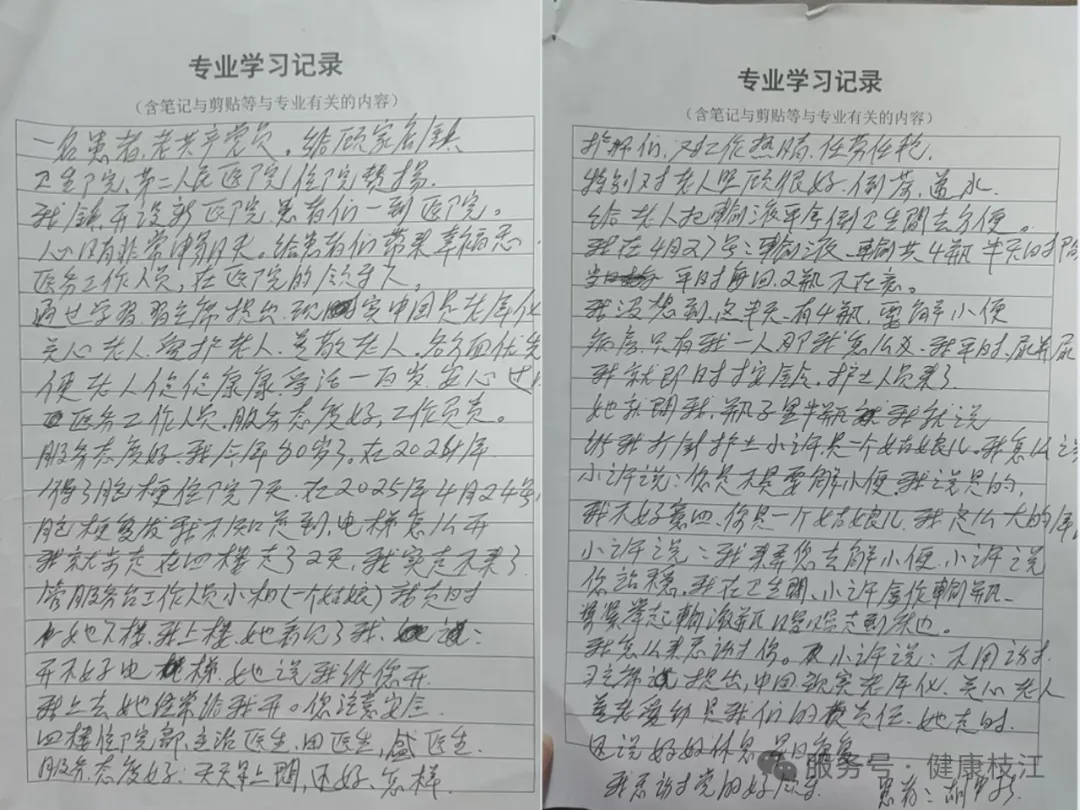 专业学习记录
(含笔记与剪贴等与专业有关的内容)
一名患者,老共产党员。给顾家店镇
卫生院,第二人民医院住院赞扬.
我镇开设新医院,患者们一到医院。
心里非常。给患者们带来幸福
医务工作人员,在医院的领导下
通过学习,习主席提出,现实中国是老年化
关心老人,爱护老人,尊敬老人。各方面优先
使老人健健康康,争活一百岁.安心过
医务工作人员,服务态度好,工作负责。
服务态度好.我今年80岁了。在2024年
得了脑梗住院7天.在2025年4月24号
脑梗复发我不知道到,电梯怎么开
我就步走在四楼走了2天,我实走不来了
管服务台工作人员小(一个姑娘)我走时
她下楼,我上楼,她看见了我,
开不好电梯.她说我给您开
我上去她经常给我开。您注意安全
四楼住院部,主治医生,田医生,医生.
服务态度好:天天早上问,还好,怎样
专业学习记录
(含笔记与剪贴等与专业有关的内容)
护士们,对工作热情,任劳任怨.
特别对老人照顾很好.倒茶,递水.
给老人把输液平拿倒卫生间去方便。
我在4月27号:输液.输共4瓶 半天的时间
平时每回2瓶不在意。
我没想到,这半天有4瓶,要解小便
病房只有我一人那我怎么义.我平时尿
我就即时按铃.护士人员来了
她就问我.瓶子里半瓶 我就说
我打针护士小许是一个姑娘儿.我怎么说
小许说:您是不是要解小便.我说是的,
我不好意四.你是一个姑娘儿.我这么大的年
小许说:我来弄您去解小便.小许说
你站稳,我在卫生间.小许拿作输瓶.
举起输液瓶
我怎么来感谢你。小许说:不用谢
习主席提出,中国现实老年化.关心老人
尊老爱幼是我们的责任.她走时.
还说好好休息 早日康复
我感谢党的好 患者:胡
服务号·健康枝江